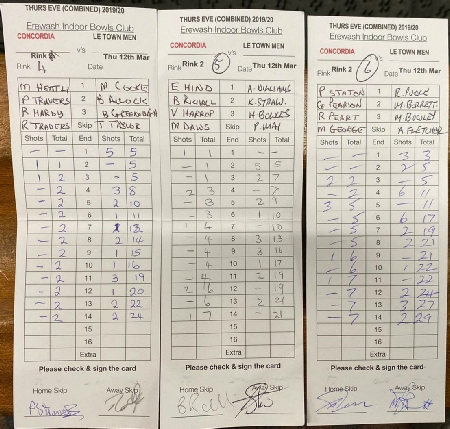 THURS EVE (COMBINED) 2019/20
Erewash Indoor Bowls Club
CONCORDIA v's LE TOWN MEN
Rink 4 Date Thu 12th Mar
M HEATH 1 M COOKE
P TRAVERS 2
R HARDY 3
R TRAVERS Skip T TAYLOR
Shots Total End Shots Total
- - 1 5 5
1 1 2 - 5
1 2 3 - 5
- 2 4 3 8
- 2 5 2 10
- 2 6 1 11
- 2 7 2 13
- 2 8 2 14
- 2 9 1 15
- 2 10 1 16
- 2 11 3 19
- 2 12 1 20
- 2 13 2 22
- 2 14 2 24
15
16
Extra
Please check & sign the card
Home Skip Away Skip
THURS EVE (COMBINED) 2019/20
Erewash Indoor Bowls Club
CONCORDIA v's LE TOWN MEN
Rink 2 5 Date Thu 12th Mar
E HIND 1 A. WILLIAMS
2 K. STRAW
V HARROP 3 H BOWLES
M DAWS Skip P. MAY
Shots Total End Shots Total
1 1 1 - -
- 1 2 5 5
- 1 3 2 7
2 3 4 - 7
- 3 5 2 9
- 3 6 1 10
1 4 7 - 10
- 4 8 3 13
- 4 9 3 16
- 4 10 1 17
- 4 11 2 19
2 6 12 - 19
- 6 13 2 21
1 7 14 - 21
15
16
Extra
Please check & sign the card
Home Skip Away Skip
THURS EVE (COMBINED) 2019/20
Erewash Indoor Bowls Club
CONCORDIA v's LE TOWN MEN
Rink 2 6 Date Thu 12th Mar
P STATON 1 R. ROCK
G PEARSON 2 M. BURRETT
R PEART 3 M. BOWLEY
M GEORGE Skip A FLETCHER
Shots Total End Shots Total
- - 1 3 3
- - 2 2 5
2 2 3 - 5
- 2 4 6 11
3 5 5 - 11
- 5 6 6 17
- 5 7 2 19
- 5 8 2 21
1 6 9 - 21
- 6 10 1 22
1 7 11 - 22
- 7 12 2 24
- 7 13 3 27
- 7 14 2 29
15
16
Extra
Please check & sign the card
Home Skip Away Skip